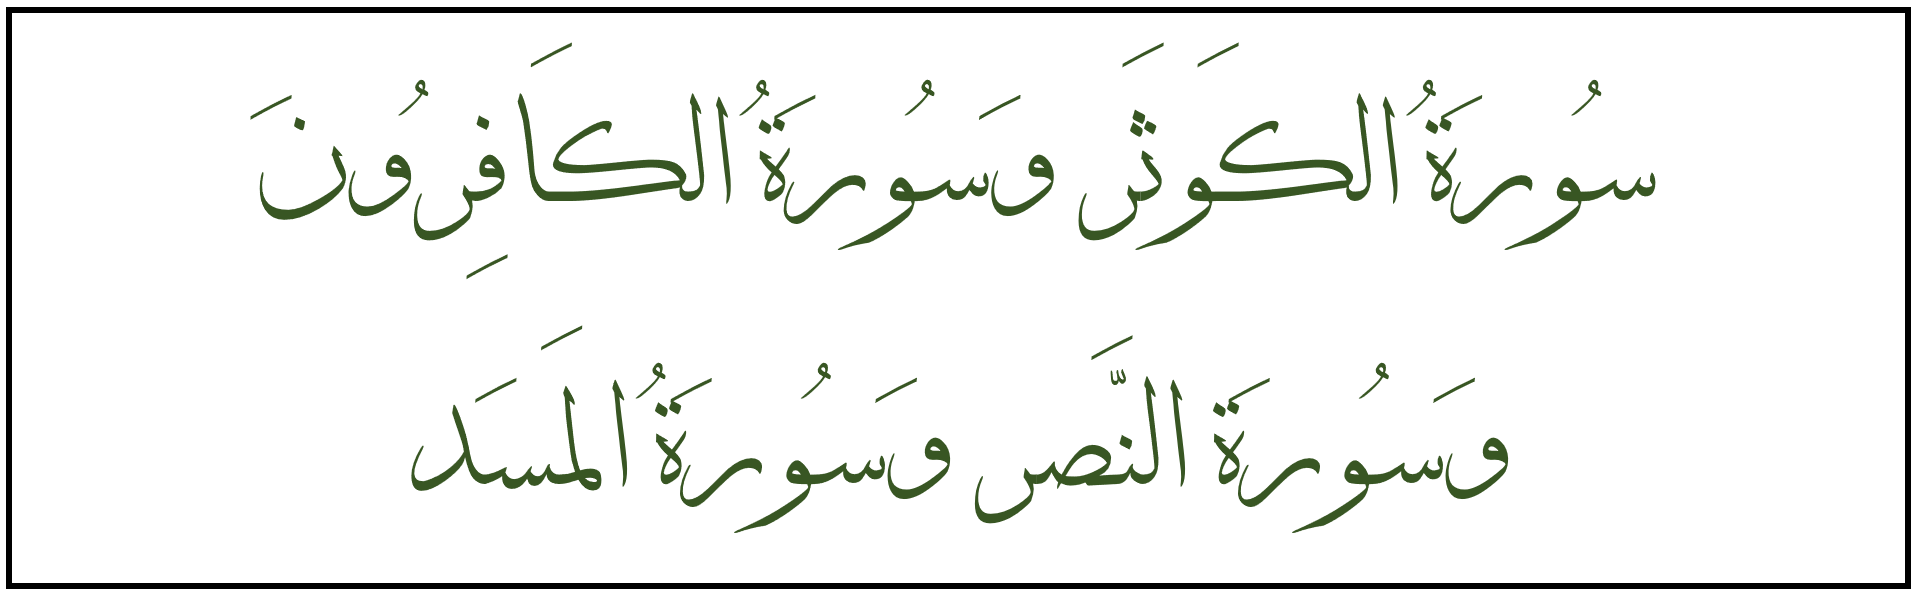 سُورَةُ الكَوثَر وَسُورَةُ الكَافِرُونَ
وَسُورَة النَّصر وَسُورَةُ المَسَد